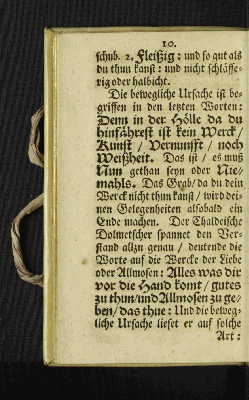 10.
schub. 2. Fleißig: und so gut als
du thun kanst: und nicht schläffe-
rig oder halbicht.
Die bewegliche Ursache ist be-
griffen in den letzten Worten:
Denn in der Hölle da du
hinfährest ist kein Werck/
Kunst / Vernunfft / noch
Weißheit. Das ist / es muß
Nun gethan seyn oder Nie-
mahls. Das Grab/ da du dein
Werck nicht thun kanst / wird dei-
nen Gelegenheiten alsobald ein
Ende machen. Der Chaldeische
Dolmetscher spannet den Ver-
stand allzu genau / deutende die
Worte auf die Wercke der Liebe
oder Allmosen: Alles was dir
vor die Hand komt / gutes
zu thun/und Allmosen zu ge-
ben/ das thue: Und die beweg-
liche Ursache lieset er auf solche
Art: